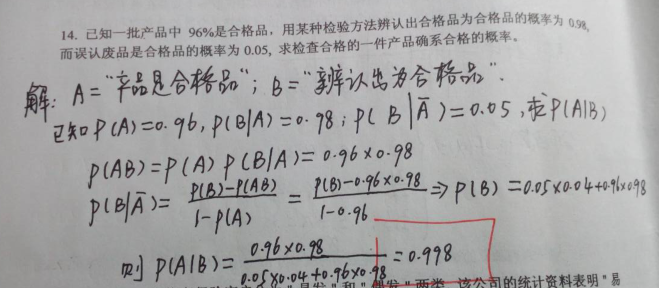 14. 已知一批产品中 96%是合格品，用某种检验方法辨认出合格品为合格品的概率为 0.98,
而误认废品是合格品的概率为 0.05, 求检查合格的一件产品确系合格的概率。
解: A = "产品是合格品"; B = "辨认出为合格品".
已知 P(A)=0.96, P(B|A)=0.98; P(B|Ā)=0.05, 求P(A|B)
P(AB)=P(A)P(B|A)=0.96×0.98
P(B|Ā)= \frac{P(B)-P(AB)}{1-P(A)} = \frac{P(B)-0.96×0.98}{1-0.96} ⇒ P(B)=0.05×0.04+0.96×0.98
则 P(A|B)= \frac{0.96×0.98}{0.05×0.04+0.96×0.98} =0.998
"易发"和"偶发"两类，该公司的统计资料表明"易